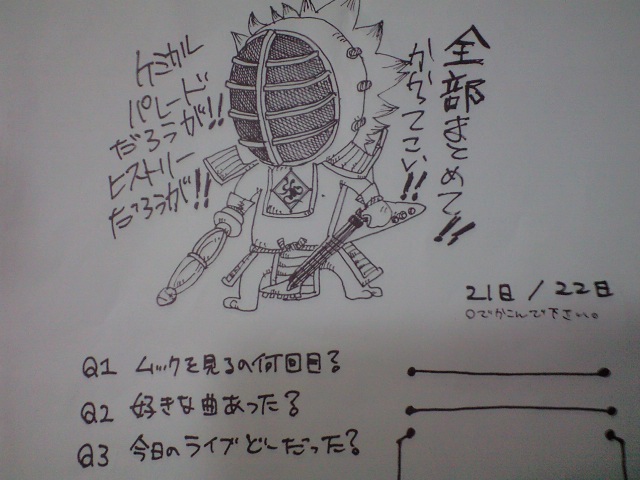 全部まとめて!!
かかってこい!!
ケミカル
パレード
だろうが!!
ヒストリー
だろうが!!
21日 / 22日
○でかこんで下さい。
Q1 ムックを見るの何回目?
Q2 好きな曲あった?
Q3 今日のライブどーだった?